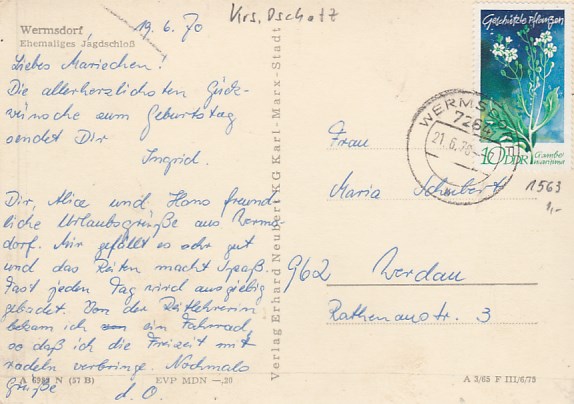 19.6.70
Krs. Oschatz
Wermsdorf
Ehemaliges Jagdschloß
Liebes Mariechen!
Die allerherzlichsten Glück-
wünsche zum Geburtstag
sendet Dir
Ingrid.
Dir, Alice und Hans freund-
liche Urlaubsgrüße aus Werms-
dorf. Mir gefällt es sehr gut
und das Reiten macht Spaß.
Fast jeden Tag wird ausgiebig
gebadet. Von der Reitlehrerin
bekam ich ein Fahrrad,
so daß ich die Freizeit mit
radeln verbringe. Nochmals
Grüße d. O.
A 6989 N (57 B) EVP MDN —,20
Verlag Erhard Neubert KG Karl-Marx-Stadt
Geschützte Pflanzen
10 DDR
Crambe maritima
WERMSD
7264
21.6.70
Frau
Maria Schubert
1563
1,-
962 Werdau
Rathenaustr. 3
A 3/65 F III/6/79